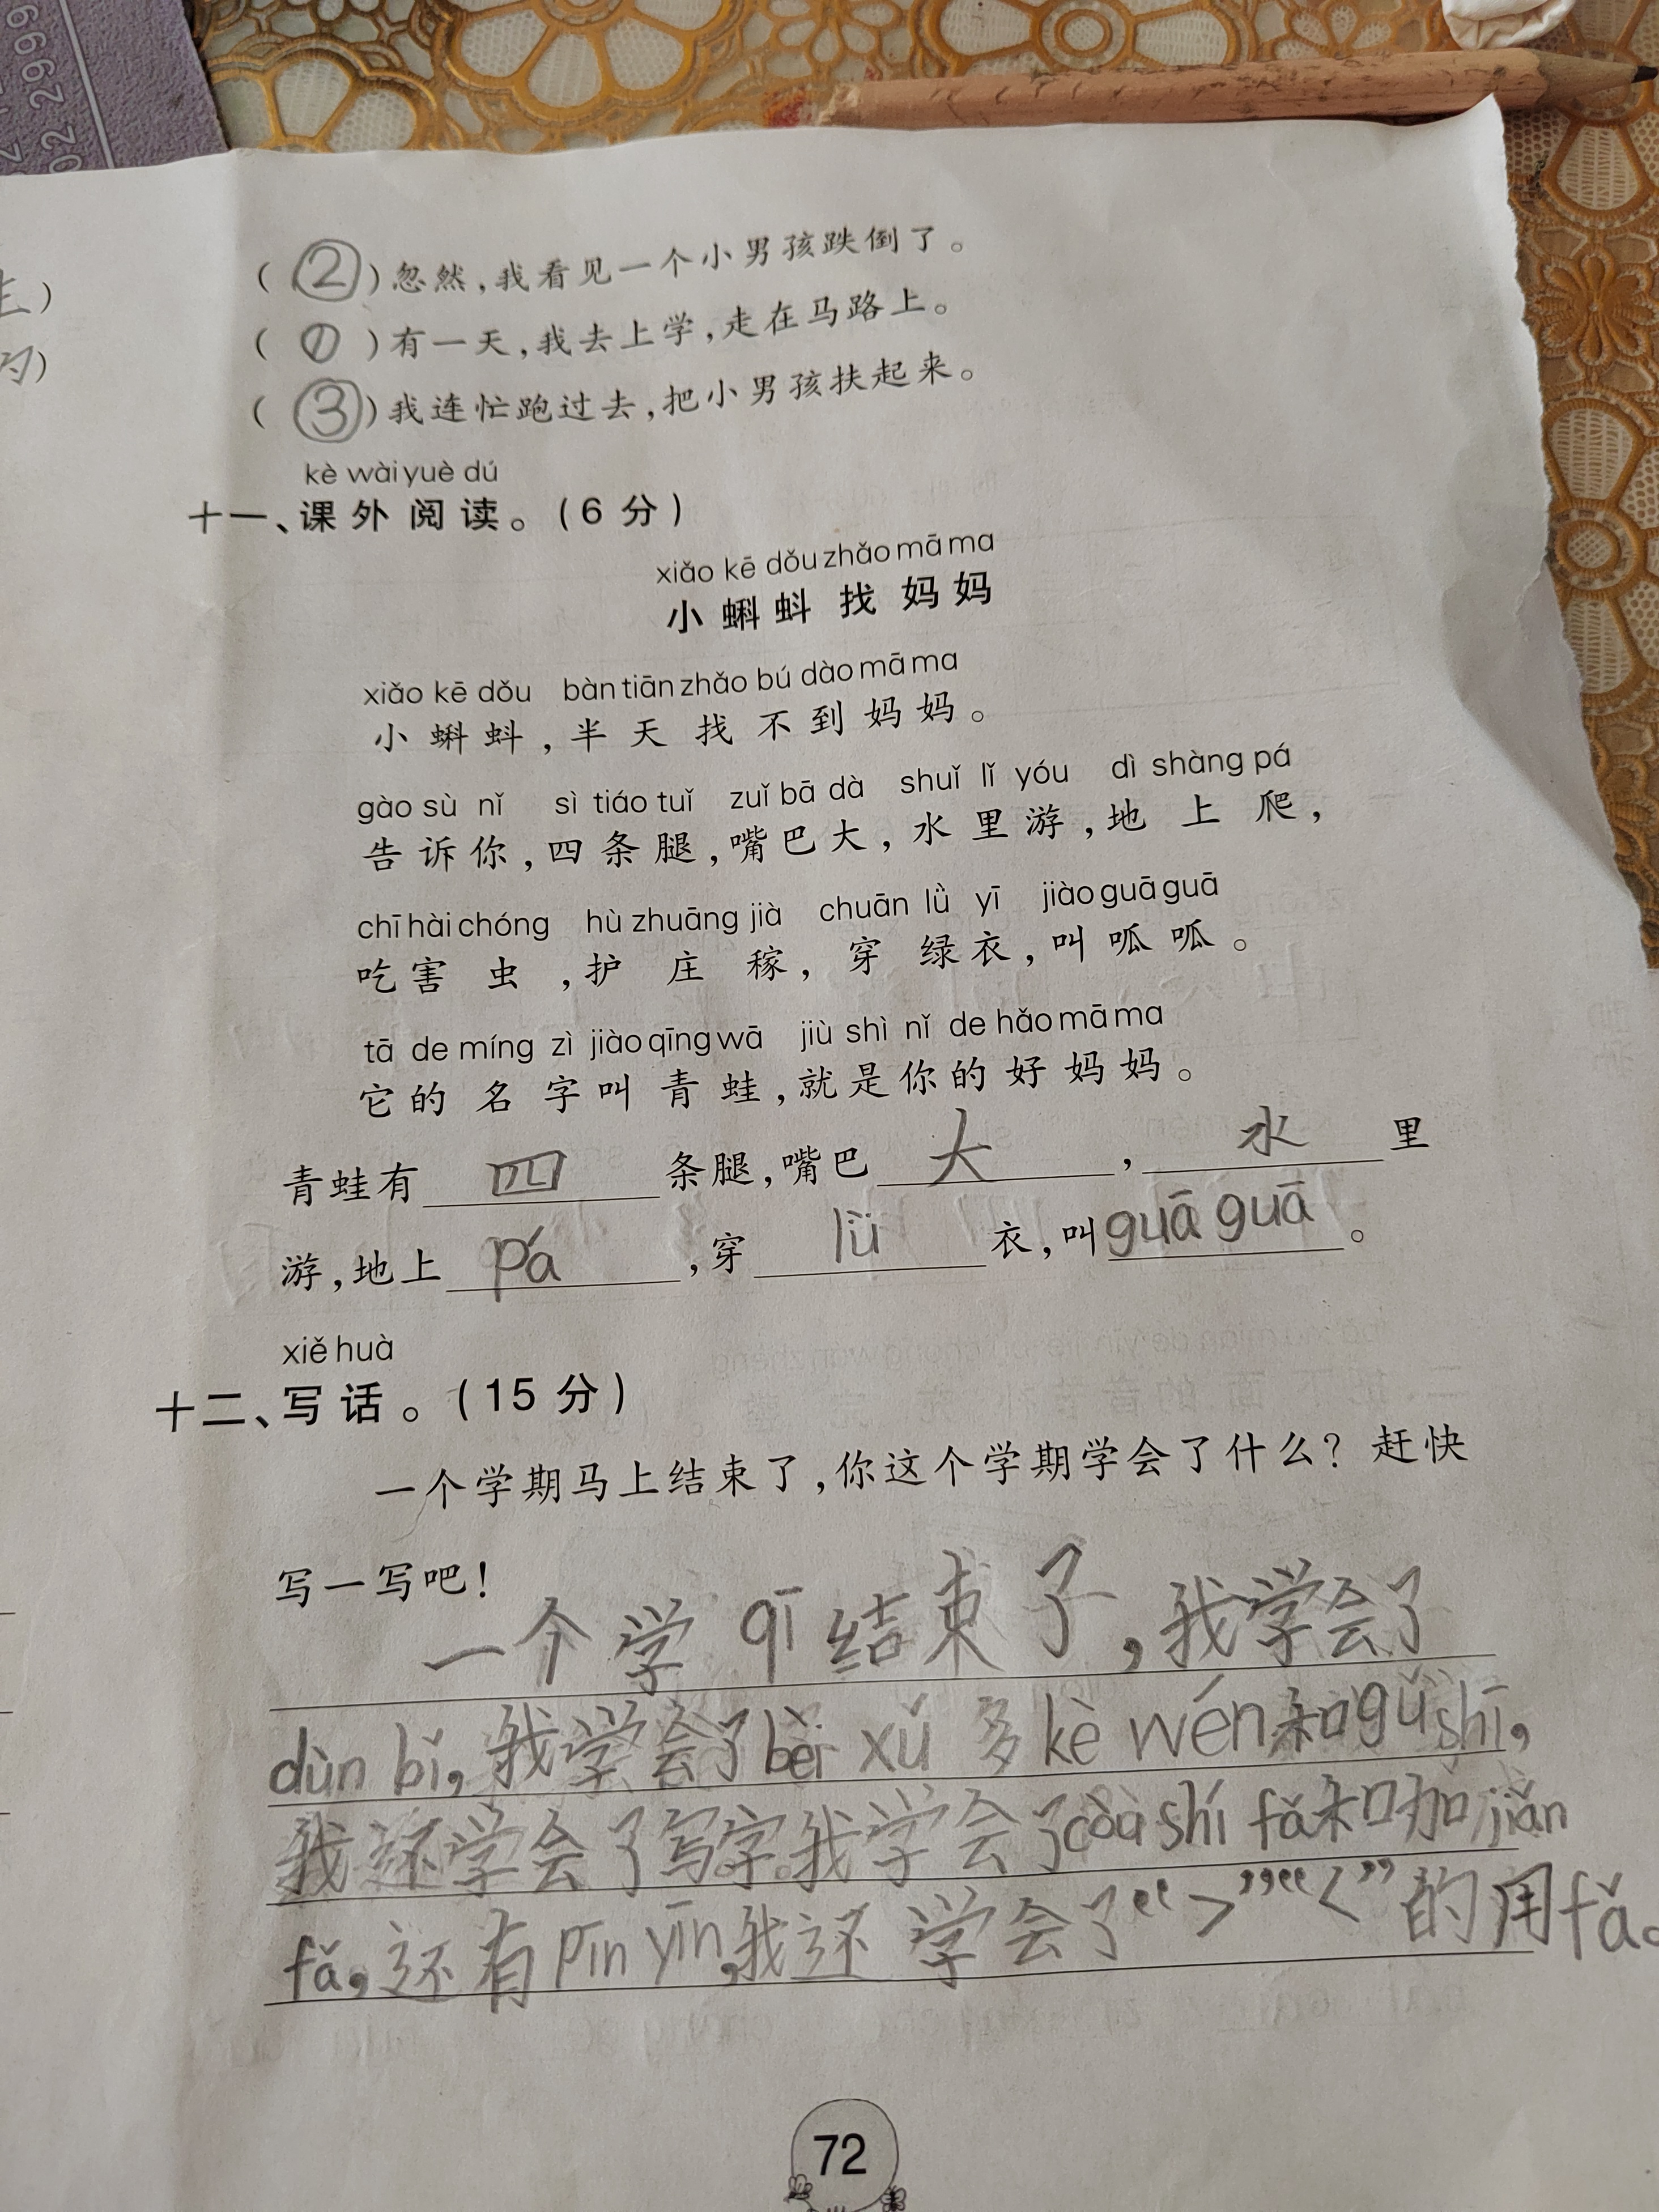 02 2999
生）
的）
（ ② ）忽然，我看见一个小男孩跌倒了。
（ ① ）有一天，我去上学，走在马路上。
（ ③ ）我连忙跑过去，把小男孩扶起来。
kè wài yuè dú
十一、课外阅读。（6 分）
xiǎo kē dǒu zhǎo mā ma
小蝌蚪找妈妈
xiǎo kē dǒu bàn tiān zhǎo bú dào mā ma
小蝌蚪，半天找不到妈妈。
gào sù nǐ sì tiáo tuǐ zuǐ bā dà shuǐ lǐ yóu dì shàng pá
告诉你，四条腿，嘴巴大，水里游，地上爬，
chī hài chóng hù zhuāng jià chuān lǜ yī jiào guā guā
吃害虫，护庄稼，穿绿衣，叫呱呱。
tā de míng zì jiào qīng wā jiù shì nǐ de hǎo mā ma
它的名字叫青蛙，就是你的好妈妈。
青蛙有 四 条腿，嘴巴 大 ， 水 里
游，地上 pá ，穿 lǜ 衣，叫 guā guā 。
xiě huà
十二、写话。（15 分）
一个学期马上结束了，你这个学期学会了什么？赶快
写一写吧！
一个学 qī 结束了，我学会了
dùn bǐ，我学会了bèi xǔ 多 kè wén 和 gù shī，
我还学会了写字。我学会了còu shí fǎ和加 jiǎn
fǎ，还有 pīn yīn，我还学会了“＞”“＜”的用 fǎ。
72